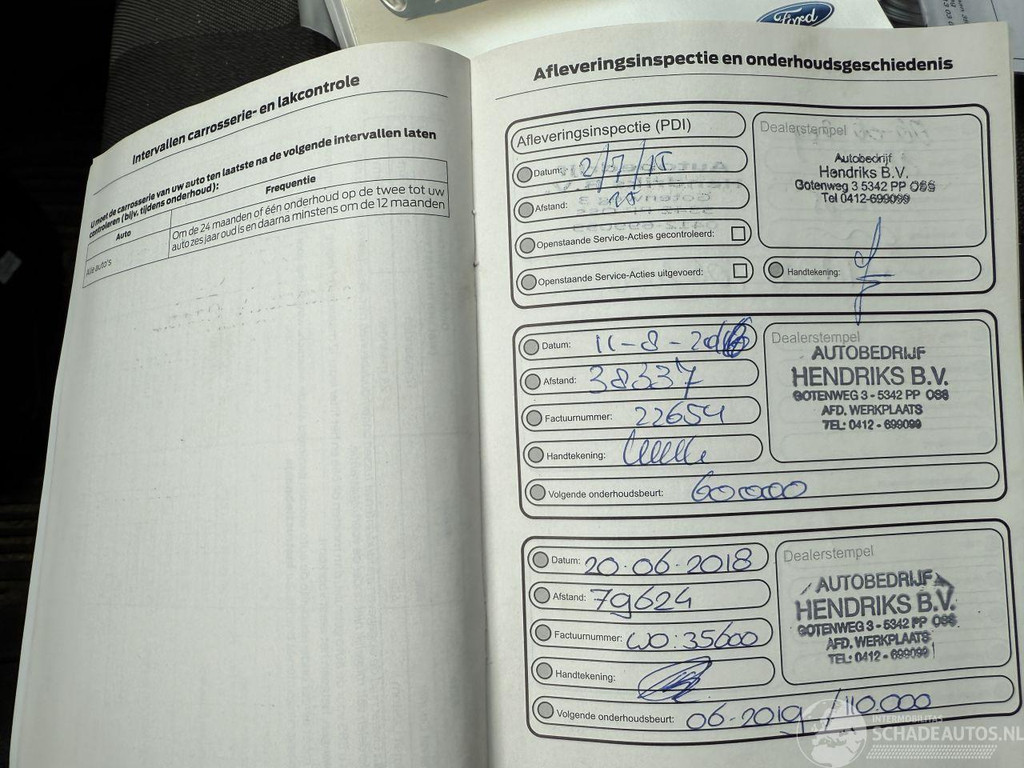 Ford
Intervallen carrosserie- en lakcontrole
U moet de carrosserie van uw auto ten laatste na de volgende intervallen laten
controleren (bijv. tijdens onderhoud):
Auto
Frequentie
Alle auto's
Om de 24 maanden of één onderhoud op de twee tot uw
auto zes jaar oud is en daarna minstens om de 12 maanden
Afleveringsinspectie en onderhoudsgeschiedenis
Afleveringsinspectie (PDI)
Datum: 2/7/15
Afstand: 15
Openstaande Service-Acties gecontroleerd:
Openstaande Service-Acties uitgevoerd:
Dealerstempel
Autobedrijf
Hendriks B.V.
Gotenweg 3 5342 PP OSS
Tel 0412-699099
Handtekening:
Datum: 11-8-2016
Afstand: 38337
Factuurnummer: 22654
Handtekening:
Volgende onderhoudsbeurt: 60000
Dealerstempel
AUTOBEDRIJF
HENDRIKS B.V.
GOTENWEG 3 - 5342 PP OSS
AFD. WERKPLAATS
TEL: 0412 - 699099
Datum: 20.06.2018
Afstand: 79624
Factuurnummer: WO: 35600
Handtekening:
Volgende onderhoudsbeurt: 06-2019 / 110.000
Dealerstempel
AUTOBEDRIJF
HENDRIKS B.V.
GOTENWEG 3 - 5342 PP OSS
AFD. WERKPLAATS
TEL: 0412 - 699099
INTERMOBILITAS
SCHADEAUTOS.NL